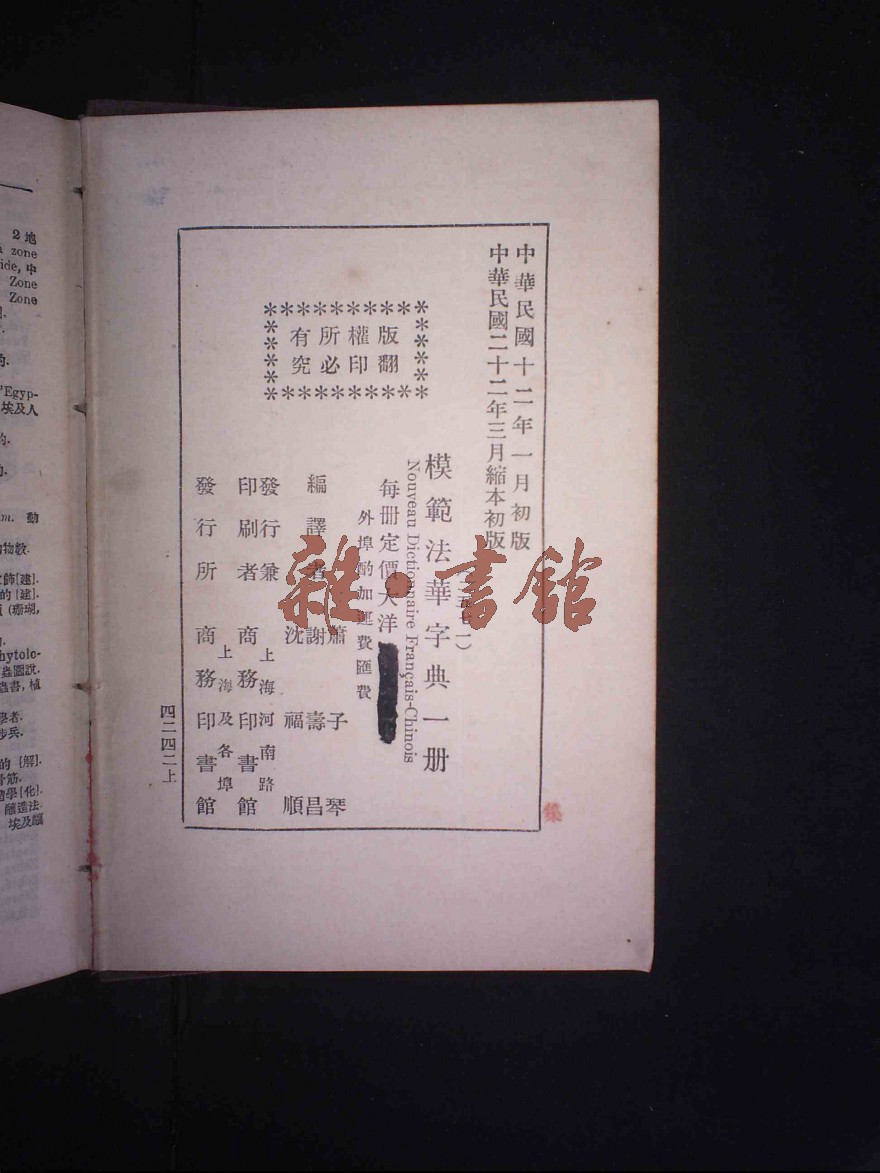 中華民國十二年一月初版
中華民國二十二年三月縮本初版
模範法華字典一册
Nouveau Dictionnaire Français-Chinois
每册定價大洋
外埠酌加運費匯費
版權所有
翻印必究
編譯者
蕭子琴
謝壽昌
沈福順
發行兼印刷者
上海河南路
商務印書館
發行所
上海及各埠
商務印書館
四二四二上
雜·書館
集
2 地
zone
ide, 中
Zone
Zone
'Egyp-
埃及人
m. 動
hytolo-
蟲圖說.
蟲書, 植
學者.
步兵.
的 [解].
骨筋.
釀造法